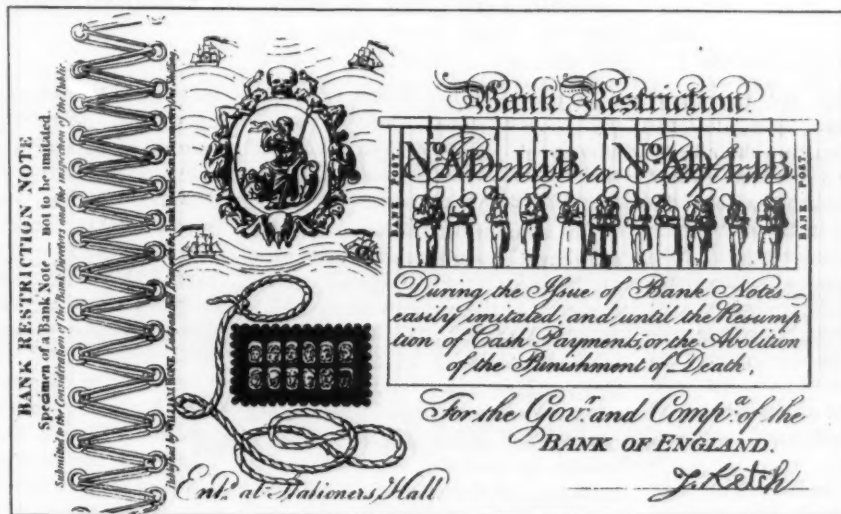 BANK RESTRICTION NOTE
Specimen of a Bank Note — not to be imitated.
Submitted to the Consideration of the Bank Directors and the inspection of the Public.
Bank Restriction.
No. AD. LIB No. AD. LIB
to Perform
BANK POST.
BANK POST.
During the Issue of Bank Notes
easily imitated, and until the Resump
tion of Cash Payments, or the Abolition
of the Punishment of Death,
For the Govr. and Compa. of the
BANK OF ENGLAND.
J. Ketch
Entd. at Stationers Hall